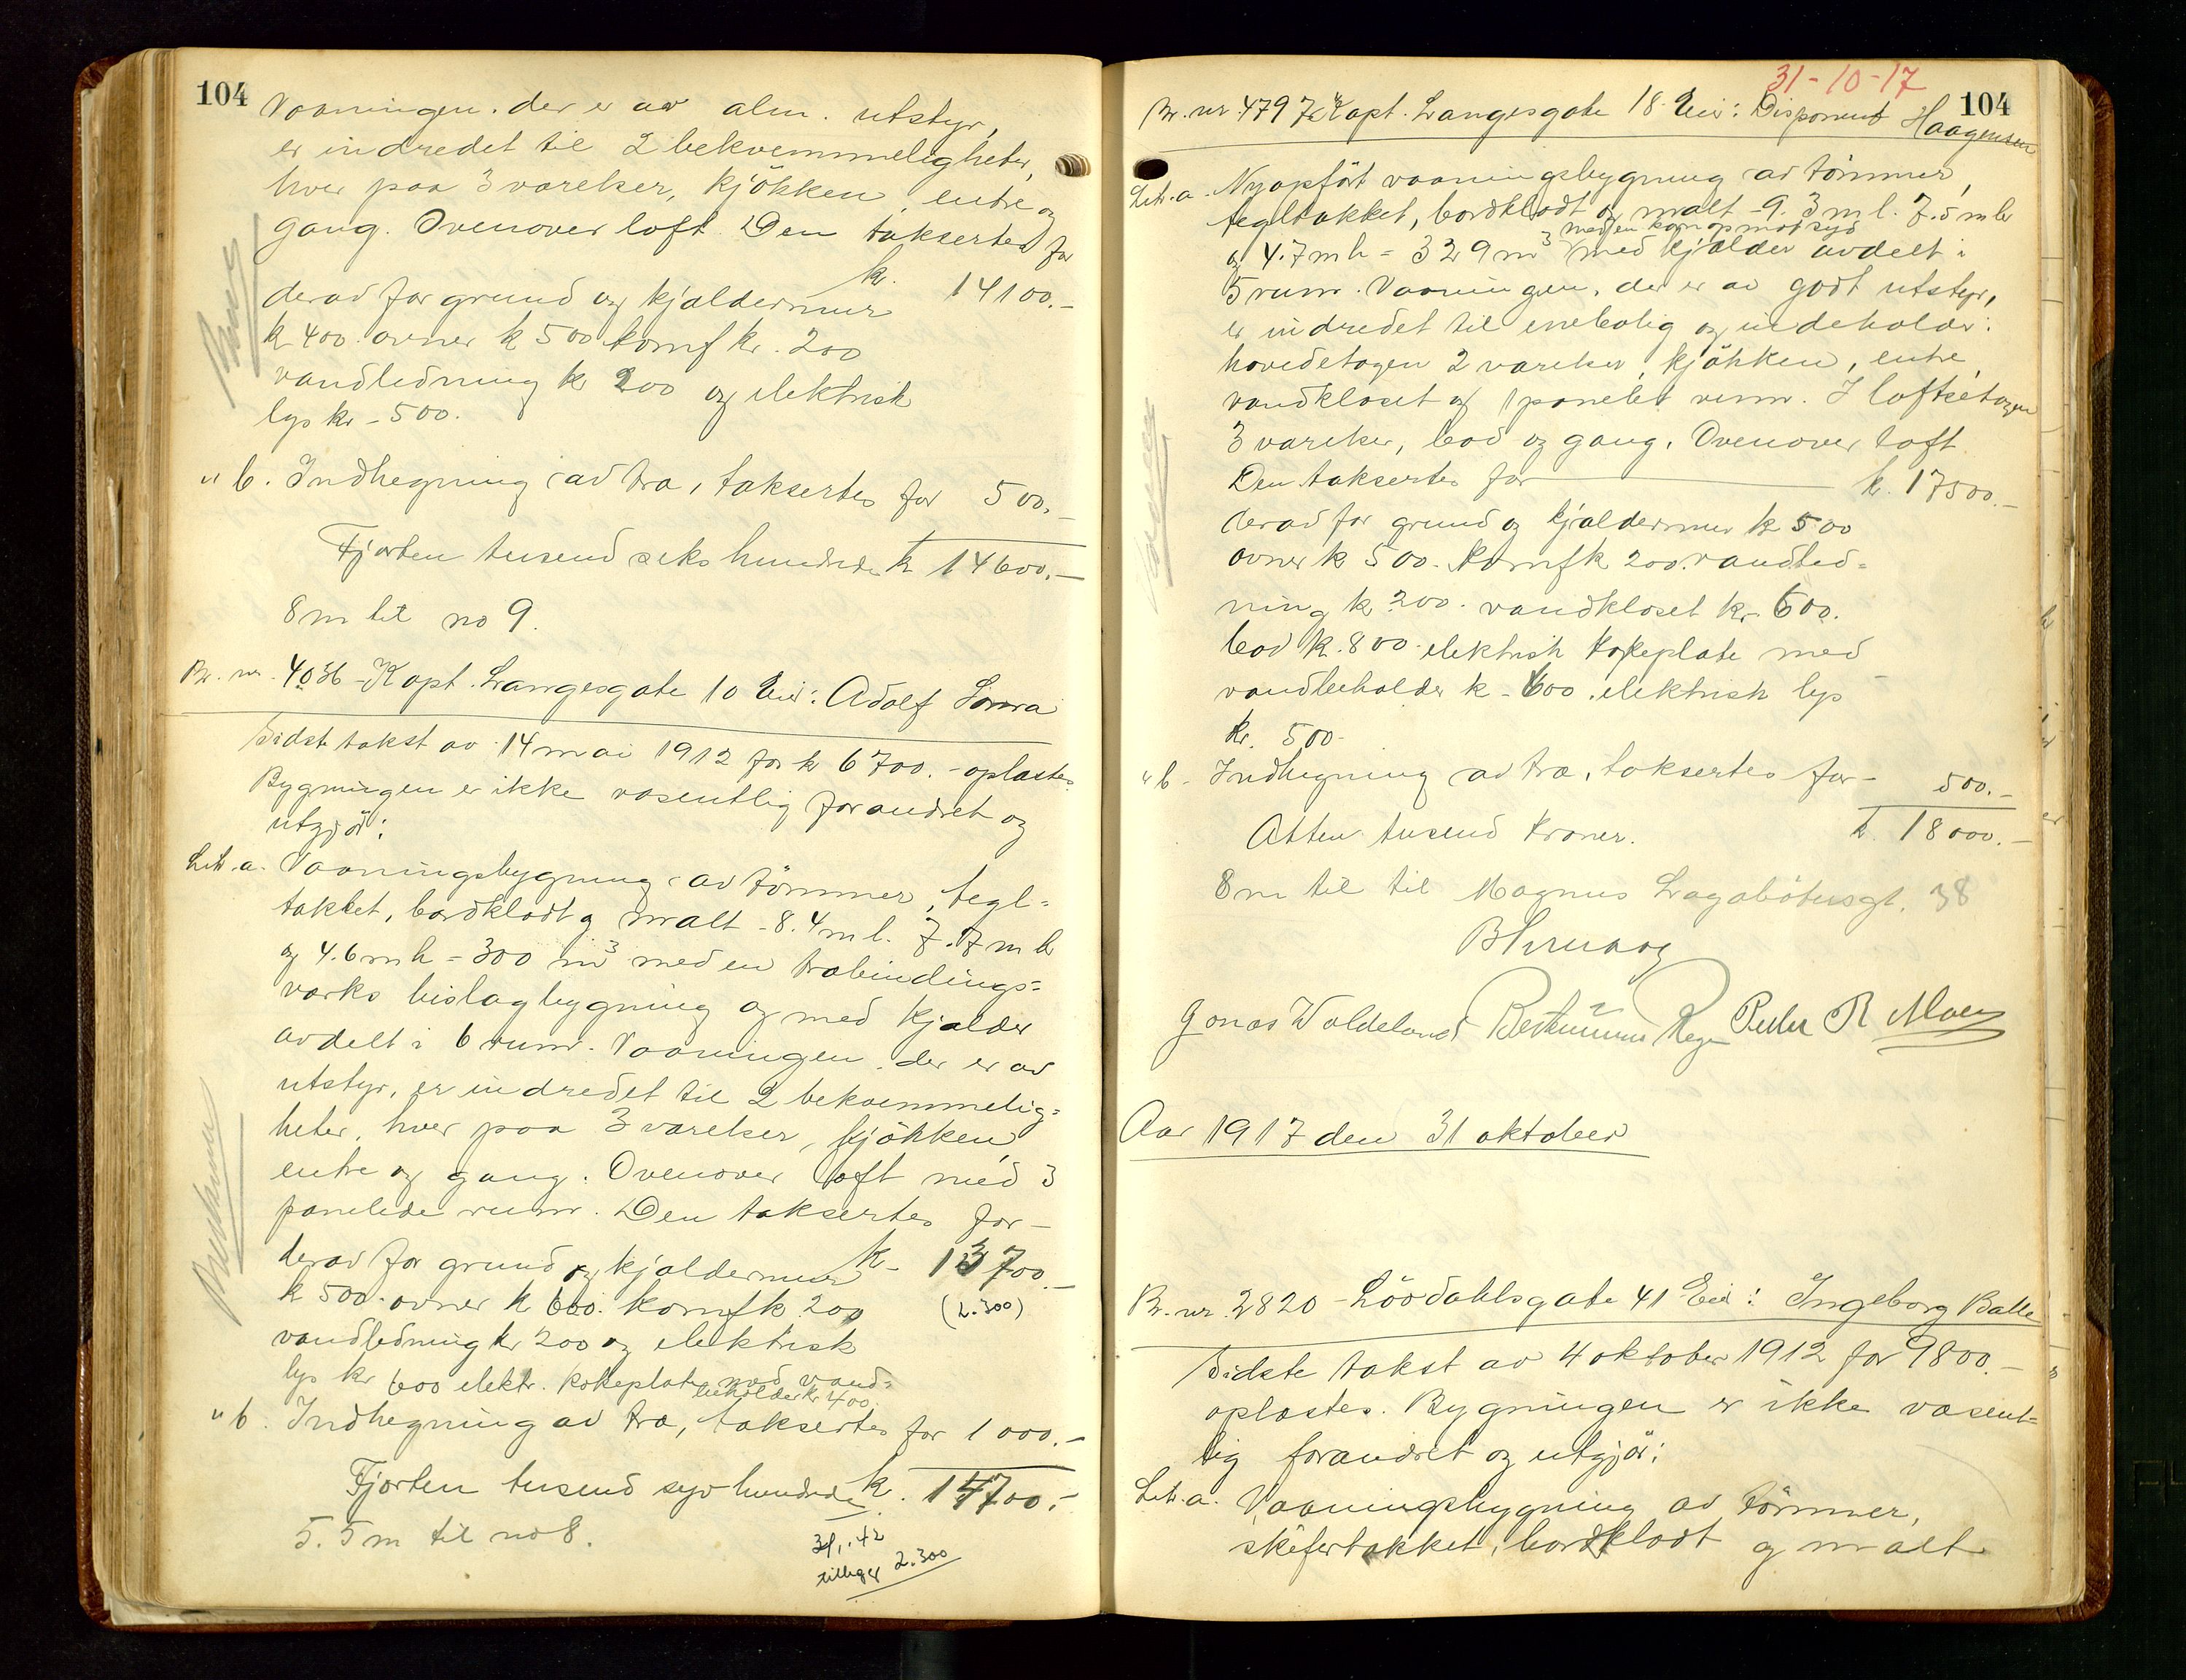 104
Vaaningen, der er av alm. utstyr,
er indredet til 2 bekvemmeligheter,
hver paa 3 værelser, kjökken, entre og
gang. Ovenover loft. Den takseres for
kr. 14100.-
derav for grund og kjældermur
kr 400. ovner kr 500 komf kr. 200
vandledning kr 200 og elektrisk
lys kr - 500.
" b. Indhegning av træ, takseres for 500.-
Fjorten tusend seks hundrede kr 14600.-
8 m til no 9.
Br. nr. 4036 - Kapt. Langesgate 10 Eier: Adolf
Sidste takst av 14 mai 1912 for kr 6700.- oplæstes.
Bygningen er ikke væsentlig forandret og
utgjör:
Litr. a. Vaaningsbygning av tömmer, tegl=
takket, bordklædt og malt - 8.4 m l. 7.7 m br
og 4.6 m h = 300 m³ med en træbindings=
værks bislagbygning og med kjælder
avdelt i 6 rum. Vaaningen, der er av
utstyr, er indredet til 2 bekvemmelig=
heter, hver paa 3 værelser, kjökken,
entre og gang. Ovenover loft med 3
panelede rum. Den takseres for -
kr - 13700.-
derav for grund og kjældermur
kr 500. ovner kr 600. komf kr 200
(2.300)
vandledning kr 200 og elektrisk
lys kr 600 elektr. kokeplate med vand=
beholder kr 400.
" b. Indhegning av træ, takseres for 1000.-
Fjorten tusend syv hundrede kr. 14700.-
5.5 m til no 8.
31/1.42
tillegg 2.300
31-10-17
104
Br. nr. 4797 Kapt. Langesgate 18 Eier: Disponent Haagensen
Litr. a. Nyopfört vaaningsbygning av tömmer,
tegltakket, bordklædt og malt - 9.3 m l. 7.5 m br
med en karnap mot syd
og 4.7 m h = 329 m³ med kjælder avdelt i
5 rum. Vaaningen, der er av godt utstyr,
er indredet til enebolig og indeholder:
hovedetagen 2 værelser, kjökken, entre,
vandkloset og 1 panelet rum. I loftsetagen
3 værelser, bad og gang. Ovenover loft
Den takseres for kr. 17500.-
derav for grund og kjældermur kr 500
ovner kr 500. komf kr 200. vandled=
ning kr 200. vandkloset kr. 600.
bad kr. 800. elektrisk kokeplate med
vandbeholder kr - 600. elektrisk lys
kr. 500-
" b - Indhegning av træ, takseres for - 500.-
Atten tusend kroner. kr 18000.-
8 m til til Magnus Lagabötersgt. 38
Jonas Waldeland Peder R Moen
Aar 1917 den 31 oktober
Br. nr. 2820 - Lövdahlsgate 41 Eier: Ingeborg Balle
Sidste takst av 4 oktober 1912 for 9800.-
oplæstes. Bygningen er ikke væsent=
lig forandret og utgjör:
Litr. a. Vaaningsbygning av tömmer,
skifertakket, bordklædt og malt